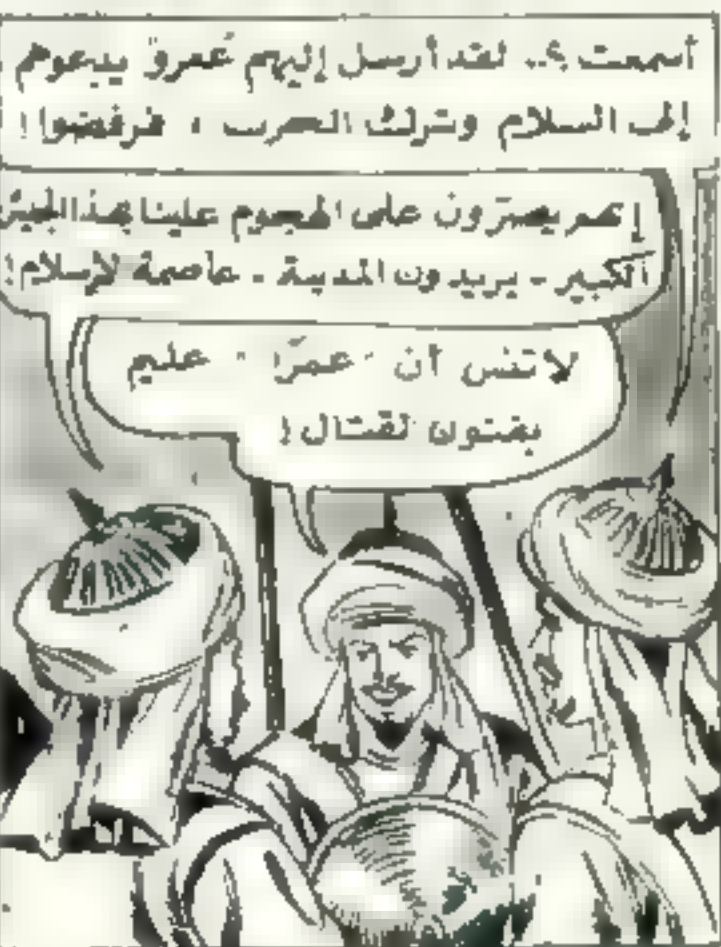 أسمعت ؟.. لقد أرسل إليهم عُمرو يدعوهم
إلى السلام وترك الحرب ، فرفضوا !
إنهم يصرّون على الهجوم علينا بهذا الجيش
الكبير - يريدون المدينة - عاصمة الإسلام !
لا تنس أن " عمرًا " عليم
بفنون القتال !